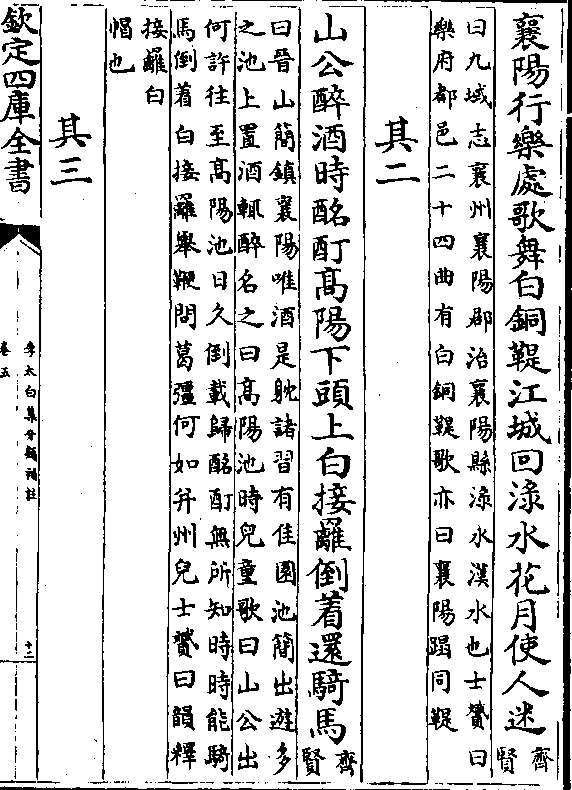 襄陽行樂處歌舞白銅鞮江城回淥水花月使人迷齊賢
曰九域志襄州襄陽郡治襄陽縣淥水漢水也士贇曰
樂府都邑二十四曲有白銅鞮歌亦曰襄陽蹋同鞮
其二
山公醉酒時酩酊髙陽下頭上白接䍦倒着還騎馬齊賢
曰晉山簡鎮襄陽唯酒是躭諸習有佳園池簡出遊多
之池上置酒輒醉名之曰髙陽池時兒童歌曰山公出
何許往至髙陽池日久倒載歸酩酊無所知時時能騎
馬倒着白接䍦舉鞭問葛彊何如并州兒士贇曰韻釋
接䍦白
帽也
其三
欽定四庫全書
李太白集分類補註
卷五
十二